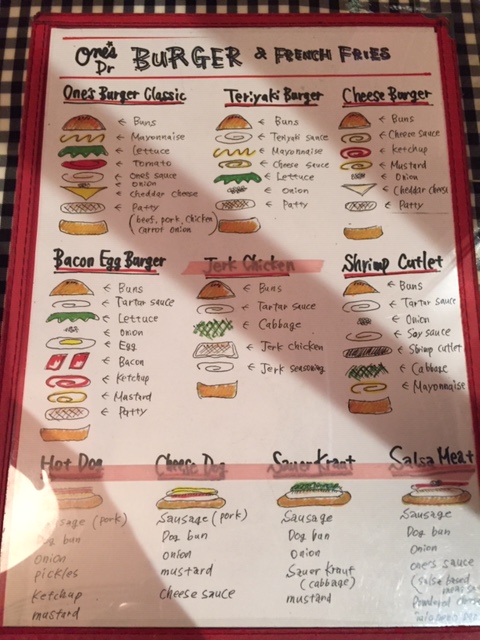 One's Dr BURGER & FRENCH FRIES
One's Burger Classic
← Buns
← Mayonnaise
← Lettuce
← Tomato
← One's sauce
← onion
← cheddar cheese
← Patty
(beef, pork, chicken
carrot onion)
Teriyaki Burger
← Buns
← Teriyaki sauce
← Mayonnaise
← Cheese sauce
← Lettuce
← Onion
← Patty
Cheese Burger
← Buns
← Cheese sauce
← Ketchup
← Mustard
← Onion
← Cheddar cheese
← Patty
Bacon Egg Burger
← Buns
← Tartar sauce
← Lettuce
← onion
← Egg
← Bacon
← Ketchup
← Mustard
← Patty
Jerk Chicken
← Buns
← Tartar sauce
← Cabbage
← Jerk chicken
← Jerk seasoning
Shrimp Cutlet
← Buns
← Tartar sauce
← Onion
← Soy sauce
← Shrimp cutlet
← Cabbage
← Mayonnaise
Hot Dog
sausage (pork)
Dog bun
onion
pickles
Ketchup
mustard
Cheese Dog
Sausage (pork)
Dog bun
onion
mustard
Cheese sauce
Sauer Kraut
Sausage
Dog bun
Onion
Sauer Kraut
(cabbage)
mustard
Salsa Meat
Sausage
Dog bun
Onion
one's sauce
(salsa based